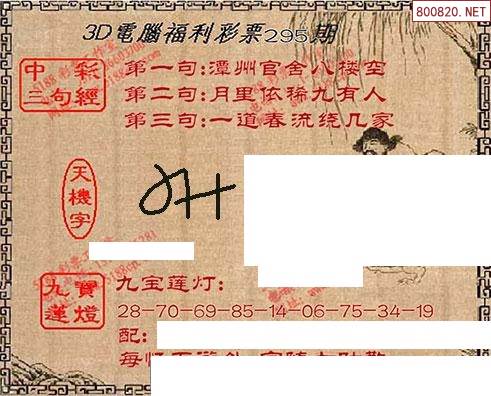 800820.NET
3D電腦福利彩票295期
中彩
三句經
第一句:潭州官舍八楼空
第二句:月里依稀九有人
第三句:一道春流绕几家
天機字
九寶
蓮燈
九宝莲灯:
28-70-69-85-14-06-75-34-19
配: